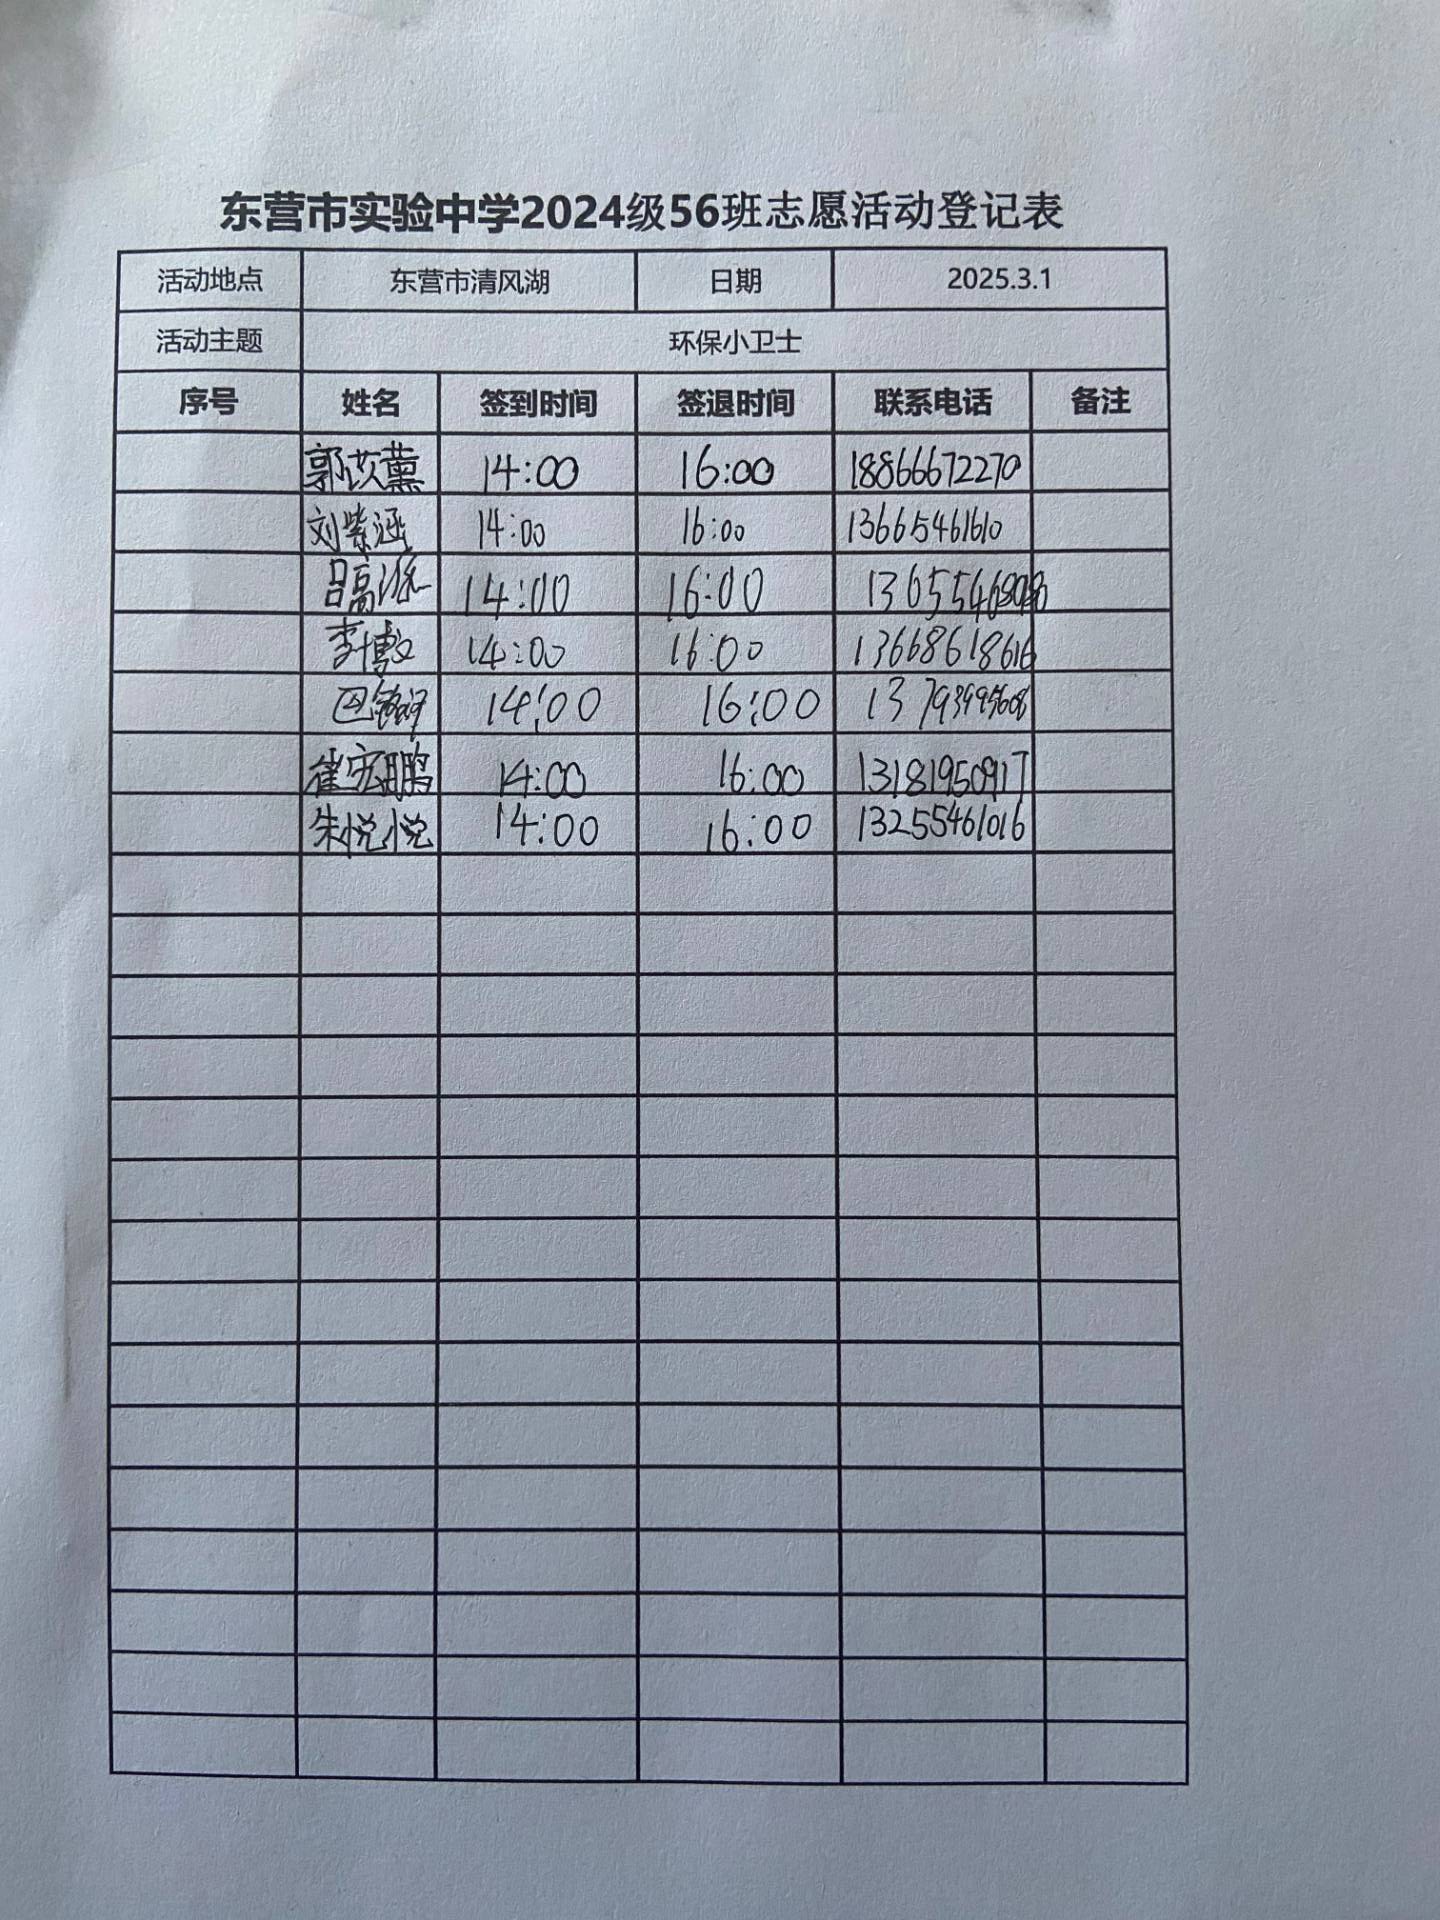 东营市实验中学2024级56班志愿活动登记表
活动地点 东营市清风湖 日期 2025.3.1
活动主题 环保小卫士
序号 姓名 签到时间 签退时间 联系电话 备注
郭苡薰 14:00 16:00 18866672270
刘紫涵 14:00 16:00 13665461610
吕高派 14:00 16:00
李博文 14:00 16:00 13668618616
巴 14:00 16:00
崔宏鹏 14:00 16:00 13181950917
朱悦悦 14:00 16:00 13255461016